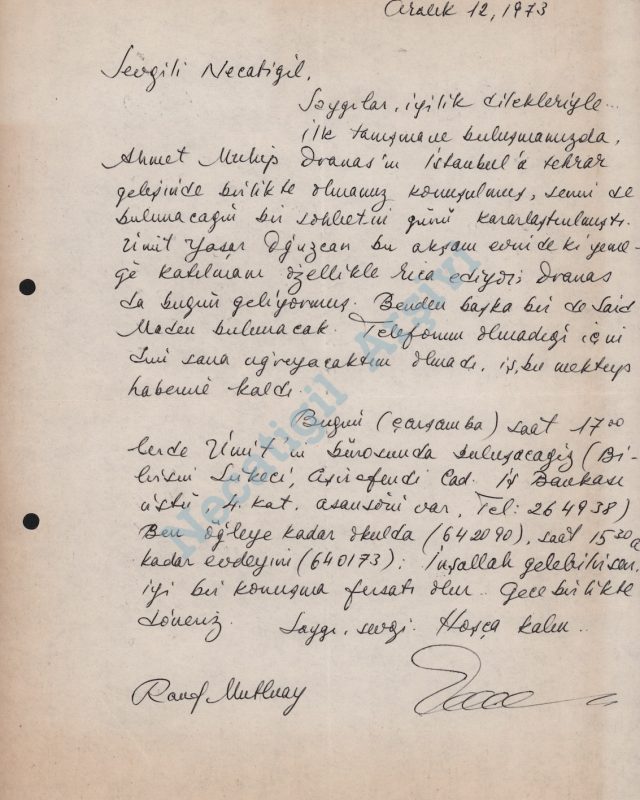 Aralık 12, 1973
Sevgili Necatigil,
Saygılar, iyilik dilekleriyle...
ilk tanışma ve buluşmamızda,
Ahmet Muhip Dranas'ın İstanbul'a tekrar
gelişinde birlikte olmamız konuşulmuş, senin de
bulunacağın bir sohbetin günü kararlaştırılmıştı.
Ümit Yaşar Oğuzcan bu akşam evindeki yeme-
ğe katılmanı özellikle rica ediyor; Dranas
da bugün geliyormuş. Benden başka bir de Said
Maden bulunacak. Telefonum olmadığı için
dün sana uğrayacaktım olmadı, iş bu mektup
haberine kaldı.
Bugün (çarşamba) saat 17⁰⁰
lerde Ümit'in bürosunda buluşacağız (Bi-
Sirkeci, Aşirefendi Cad. İş Bankası
üstü, 4. kat. asansörü var, Tel: 264938)
Ben öğleye kadar okulda (642090), saat 15³⁰a
kadar evdeyim (640173). İnşallah gelebilirsen,
iyi bir konuşma fırsatı olur.. Gece birlikte
döneriz. Saygı, sevgi. Hoşça kalın..
Rauf Mutluay
Necatigil Arşivi